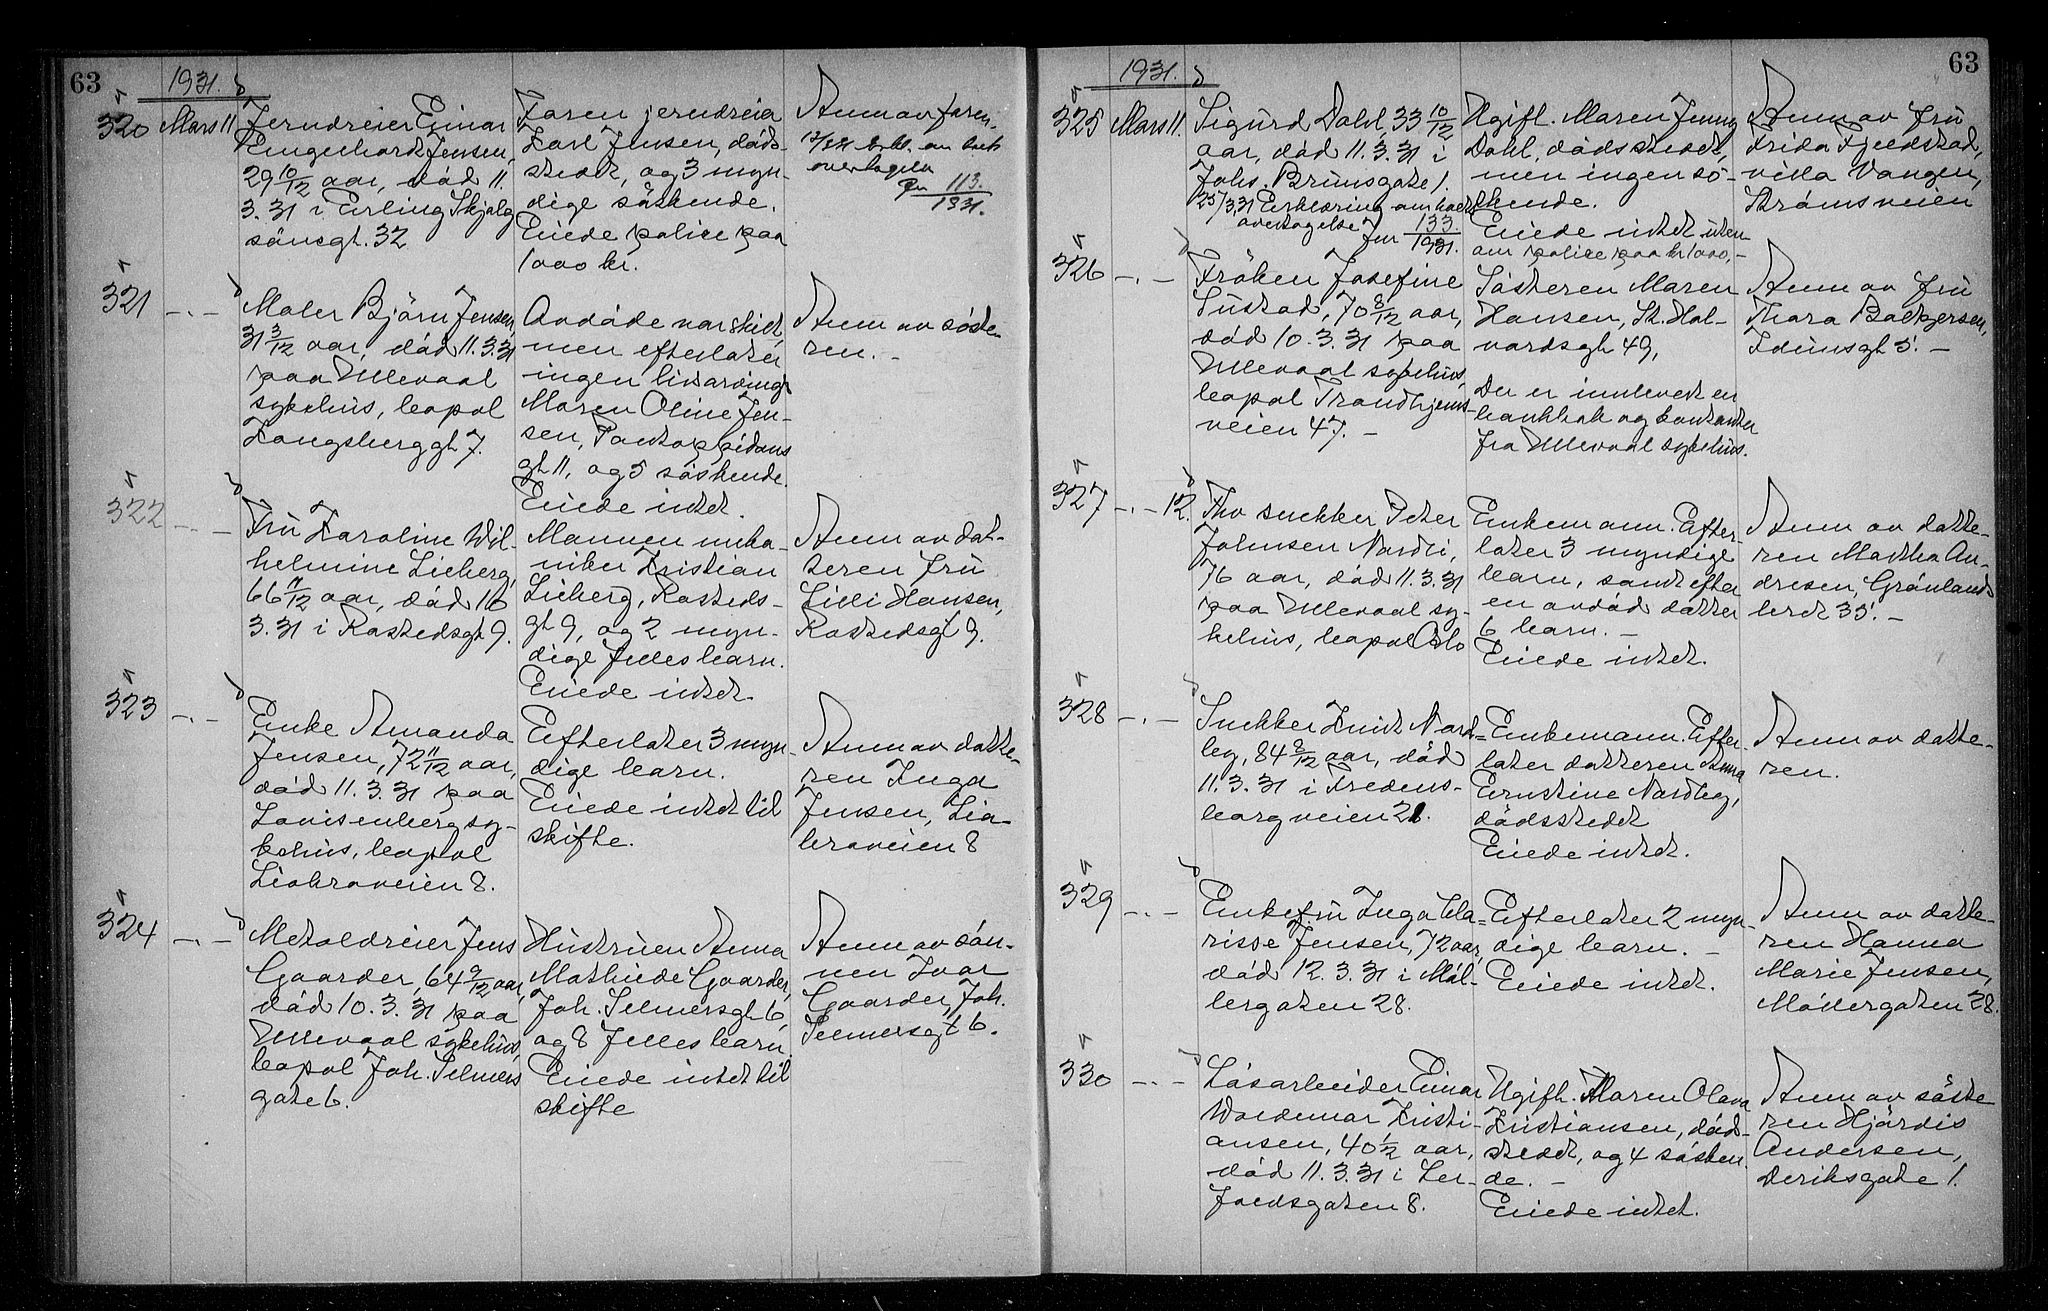 63
1931.
320 Mars 11
Jerndreier Einar
Engelhart Jensen,
29 10/12 aar, död 11.
3.31 i Erling Skjalg
sönsgt. 32
Faren jerndreier
Karl Jensen, döds-
stedet, og 3 myn-
dige söskende.
Eiede polise paa
1000 kr.
Anm av faren.
overtagelse
113.
1931.
321 -.-
Maler Björn Jensen,
31 3/12 aar, död 11.3.31
paa Ullevaal
sykehus, bopæl
Langsberggt 7.
Avdöde var skilt,
men efterlater
ingen livsarving
Moren Oline Jen-
sen, Pontoppidans
gt 11, og 5 söskende.
Eiede intet.
Anm av söste
ren. -
322 -.-
Fru Karoline Wil-
helmine Lieberg,
66 7/12 aar, död 10
3.31 i Rostedsgt 9.
Mannen meka-
niker Kristian
Lieberg, Rosteds-
gt 9, og 2 myn-
dige fellesbarn.
Eiede intet.
Anm av dat-
teren fru
Lilli Hansen,
Rostedsgt 9.
323 -.-
Enke Amanda
Jensen, 72 11/12 aar,
död 11.3.31 paa
Lovisenberg sy-
kehus, bopæl
Liabroveien 8.
Efterlater 3 myn-
dige barn.
Eiede intet til
skifte.
Anm av datte-
ren Inga
Jensen, Lia-
broveien 8
324 -.-
Metaldreier Jens
Gaarder, 64 9/12 aar,
död 10.3.31 paa
Ullevaal sykehus,
bopæl Joh. Selmers
gate 6.
Hustruen Anna
Mathilde Gaarder,
Joh. Selmersgt 6,
og 8 fellesbarn.
Eiede intet til
skifte
Anm av sön-
nen Ivar
Gaarder, Joh.
Selmersgt 6.
63
1931.
325 Mars 11.
Sigurd Dahl, 33 10/12
aar, död 11.3.31 i
Johs. Brunsgate 1.
25/3.31 Erklæring om boets
overtagelse Jnr 133.
1931.
Ugift. Moren Jenny
Dahl, dödsstedet,
men ingen sö-
skende.
Eiede intet uten
om polise paa kr 1000,-
Anm av fru
Frida Fjeldstad,
villa Vangen,
Strömsveien
326 -.-
Fröken Josefine
Sustad, 70 8/12 aar,
död 10.3.31 paa
Ullevaal sykehus,
bopæl Trondhjems-
veien 47. -
Sösteren Maren
Hansen, St. Hal-
vardsgt 49,
Der er innlevert en
bankbok og kontanter
fra Ullevaal sykehus.
Anm av fru
Thora
Idunsgt 5. -
327 -.- 12.
Fhv snekker Peter
Johnsen Nordli,
76 aar, död 11.3.31
paa Ullevaal sy-
kehus, bopæl Oslo
Enkemann. Efter-
later 3 myndige
barn, samt efter
en avdöd datter
6 barn. -
Eiede intet.
Anm av datte-
ren Martha An-
dresen, Grönlands
leret 35. -
328 -.-
Snekker Knut Nord-
leg, 84 8/12 aar, död
11.3.31 i Fredens-
borgveien 21.
Enkemann. Efter-
later datteren Anna
Ernstine Nordleg,
dödsstedet
Eiede intet.
Anm av datte-
ren.
329 -.-
Enkefru Inga Cla-
risse Jensen, 72 aar,
död 12.3.31 i Möl-
lergaten 28.
Efterlater 2 myn-
dige barn. -
Eiede intet.
Anm av datte-
ren Hanna
Marie Jensen,
Möllergaten 28.
330 -.-
Lösarbeider Einar
Woldemar Kristi-
ansen, 40 1/2 aar,
död 11.3.31 i Lei-
foldsgaten 8.
Ugift. Moren Olava
Kristiansen, död-
stedet, og 4 sösken
de. -
Eiede intet.
Anm av söste
ren Hjördis
Andersen,
Deriksgate 1.